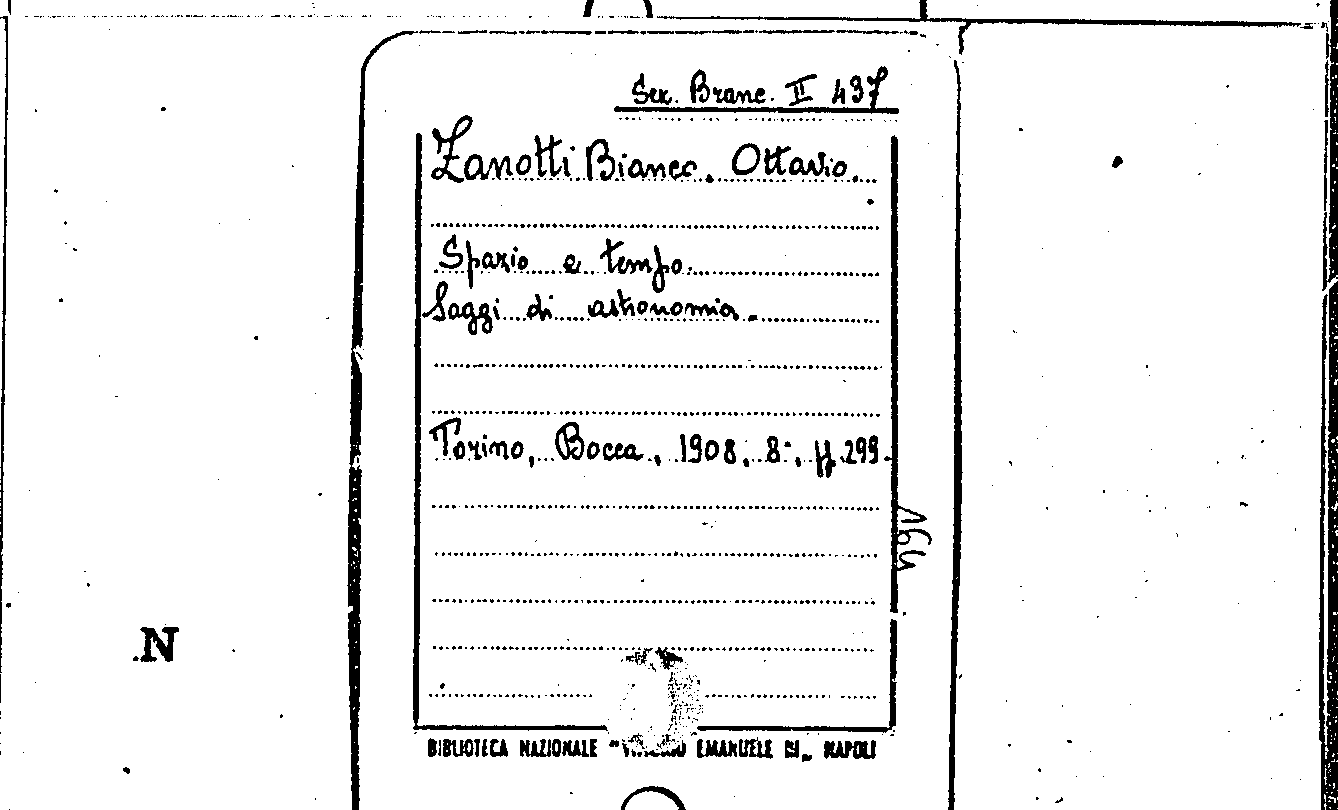 Sez. Branc. II 437
Zanotti Bianco, Ottavio.
Spazio e tempo.
Saggi di astronomia.
Torino, Bocca, 1908, 8°, pp. 299.
N
BIBLIOTECA NAZIONALE " EMANUELE III„ NAPOLI